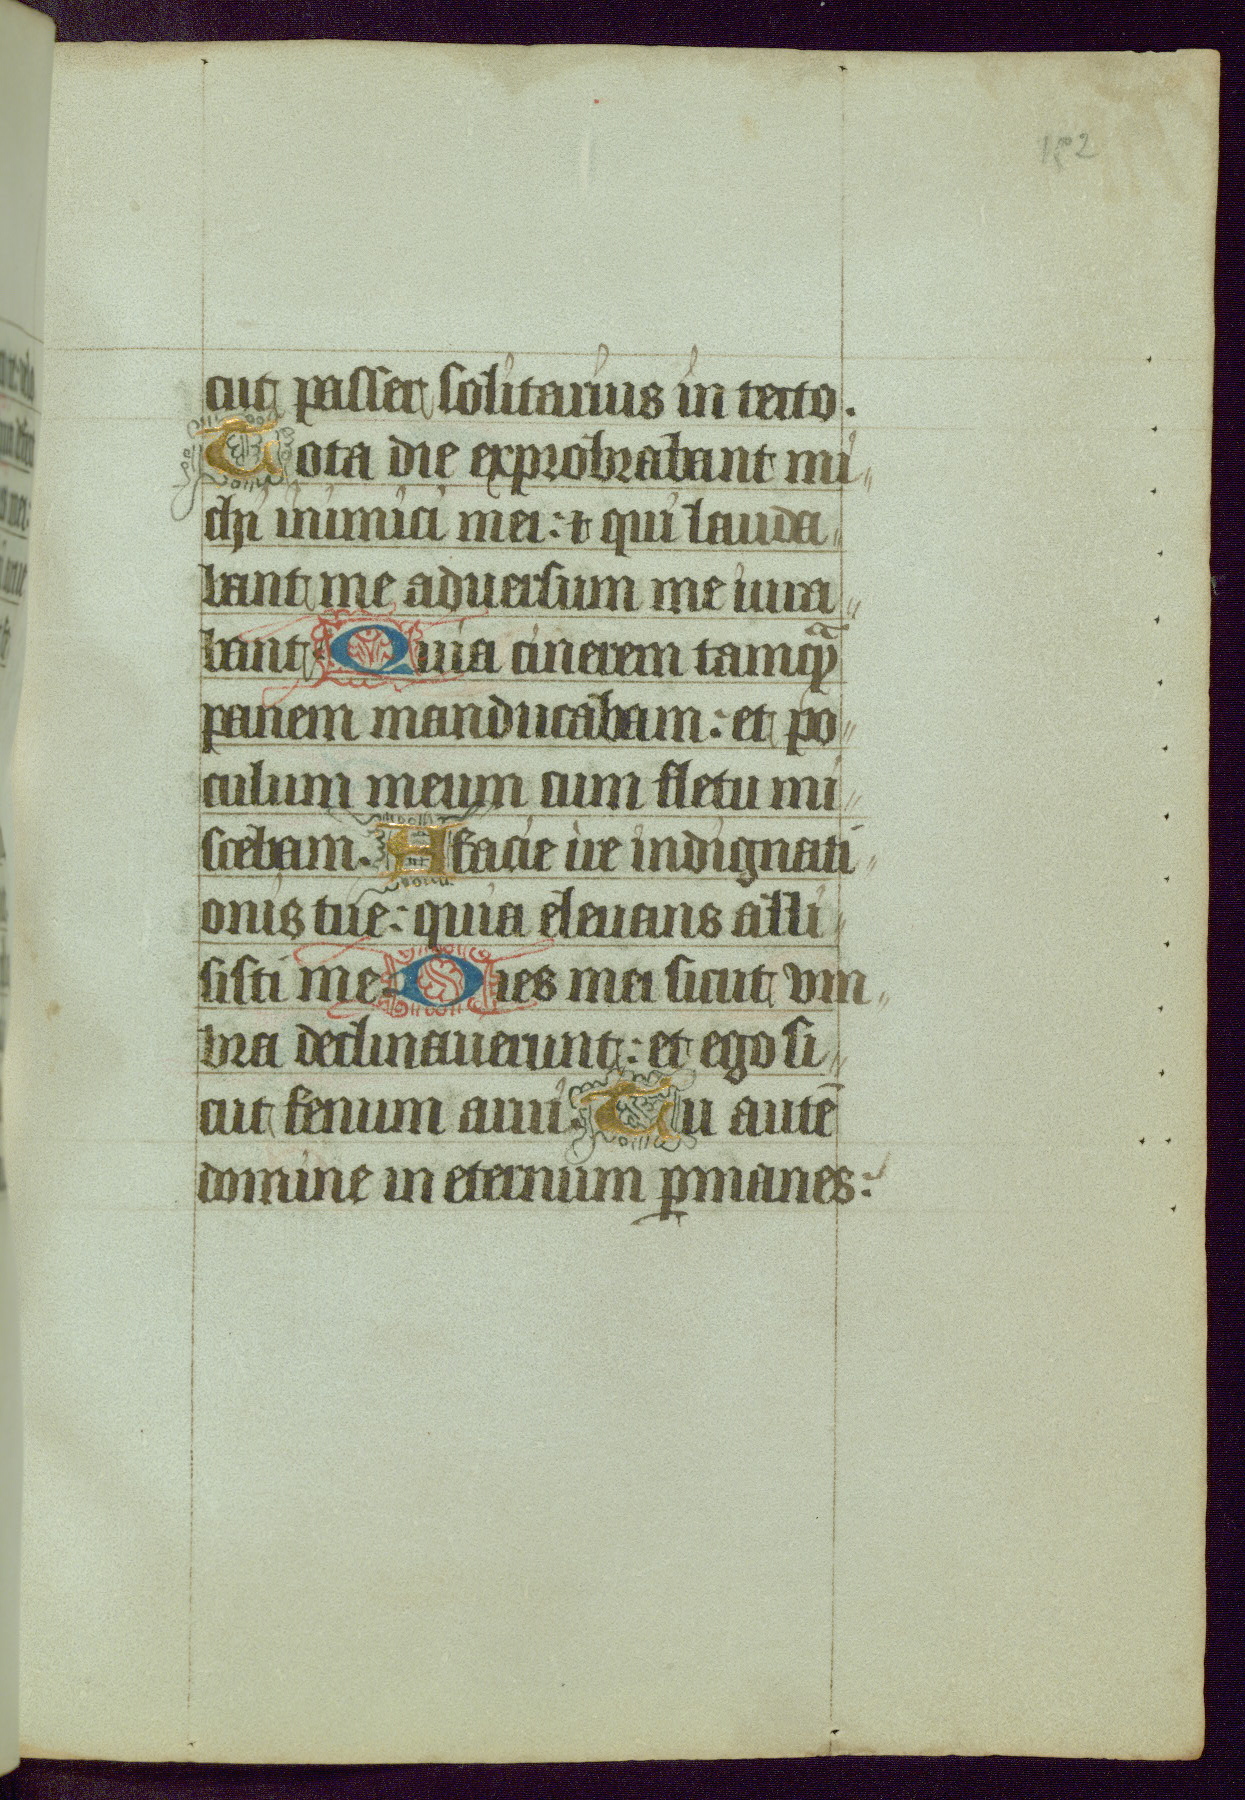 152
cut passer solitarius in tecto.
Tota die exprobrabant mi〃
chi inimici mei: ⁊ qui lauda〃
bant me aduersum me iura〃
bant. Quia cinerem tamqȝ̄
panem manducabam: et po〃
culum meum cum fletu mi〃
scebam. A facie ire indignati〃
onis tue: quia eleuans alli〃
sisti me. Dies mei sicut vm〃
bra declinauerunt: et ego si〃
cut fenum arui. Tu autē
domine in eternum ꝑmanes: